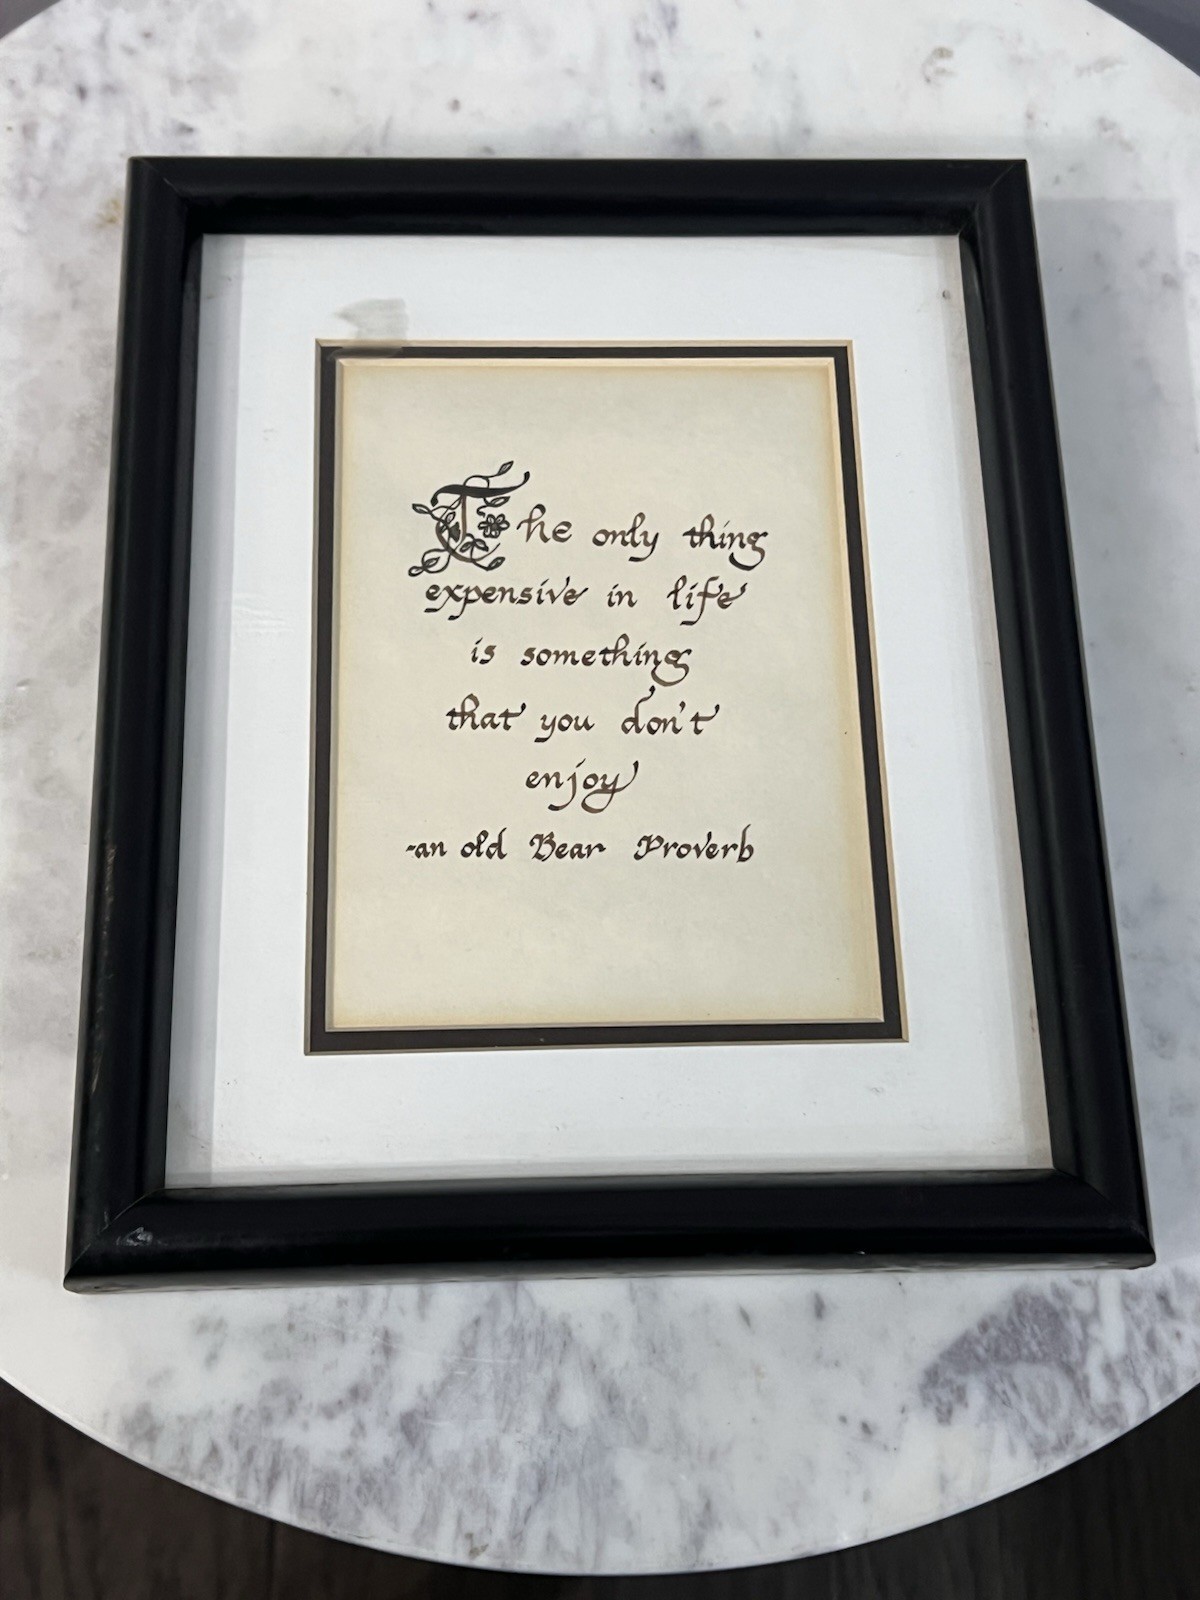 The only thing
expensive in life
is something
that you don't
enjoy
-an old Bear Proverb